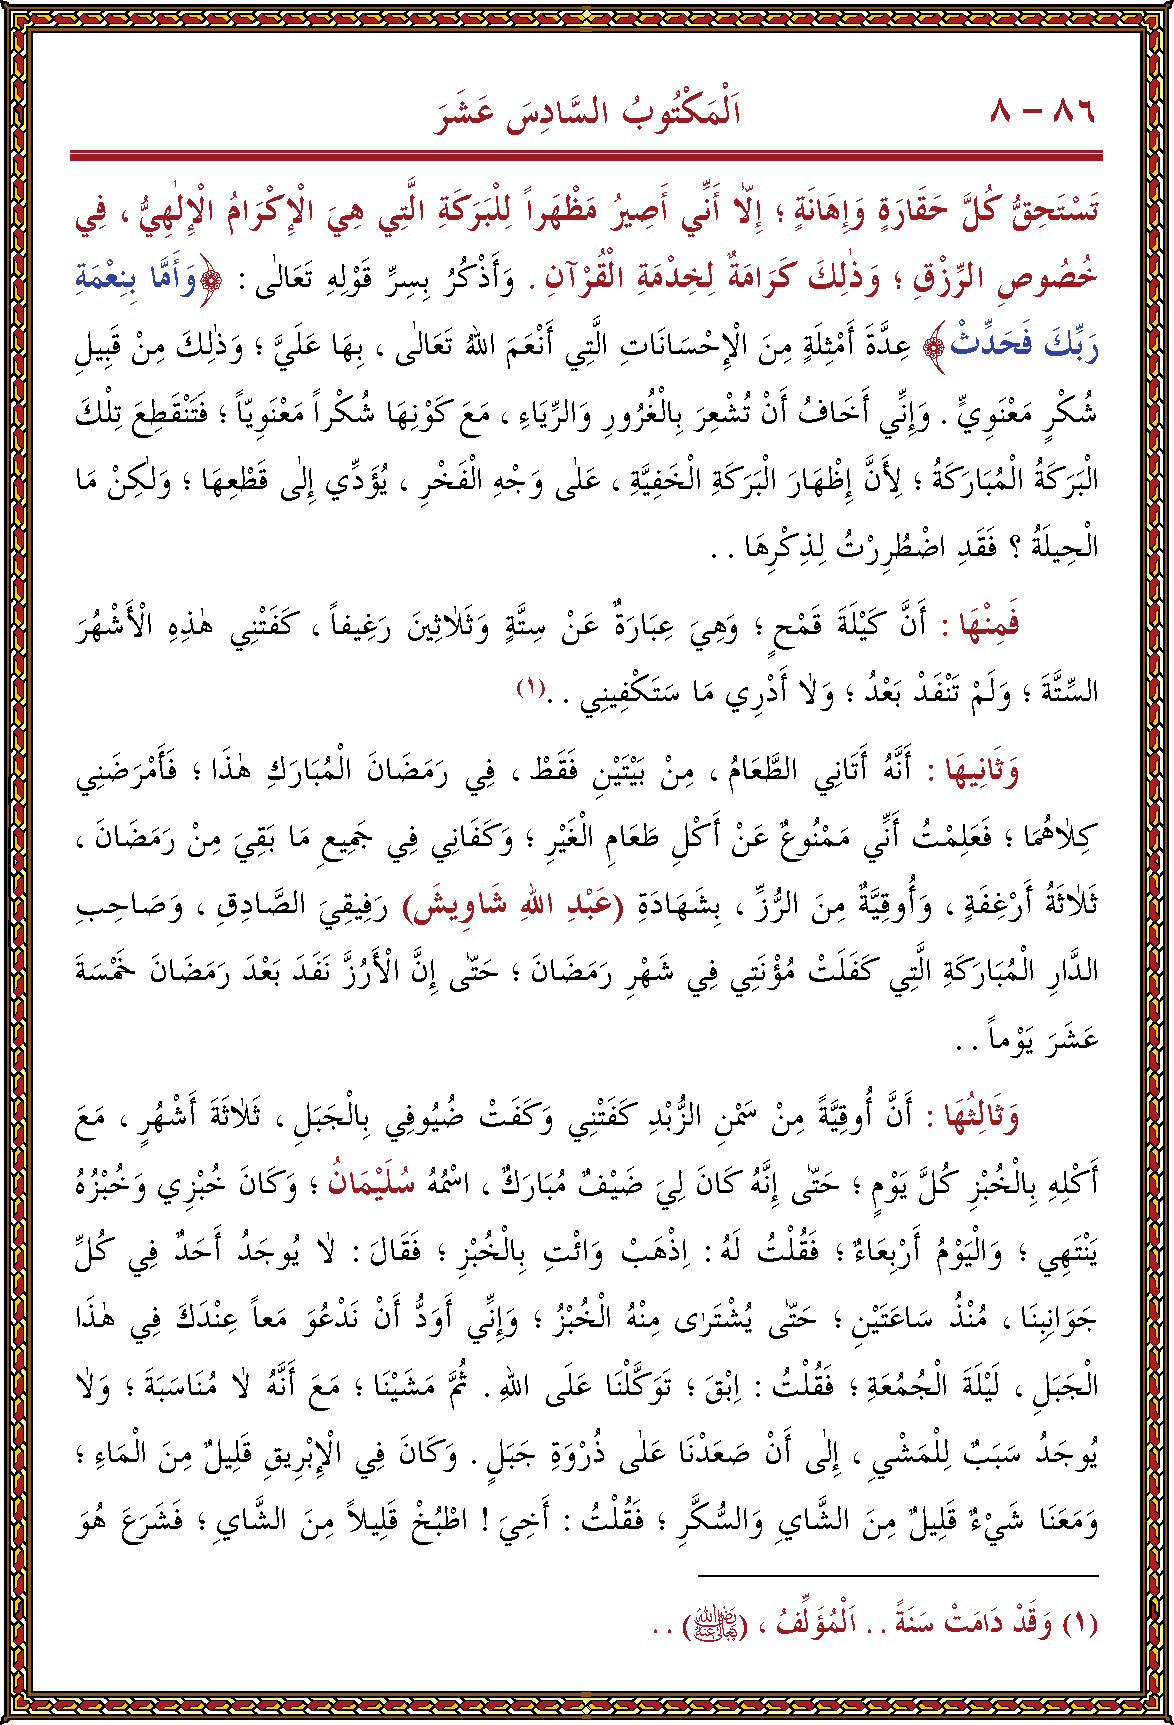 ٨٦ – ٨ اَلْمَكْتُوبُ السَّادِسَ عَشَرَ
تَسْتَحِقُّ كُلَّ حَقَارَةٍ وَإِهَانَةٍ ؛ إِلاّٰ أَنِّي أَصِيرُ مَظْهَراً لِلْبَرَكَةِ الَّتِي هِيَ الْإِكْرَامُ الْإِلٰهِيُّ ، فِي
خُصُوصِ الرِّزْقِ ؛ وَذٰلِكَ كَرَامَةٌ لِخِدْمَةِ الْقُرْآنِ . وَأَذْكُرُ بِسِرِّ قَوْلِهِ تَعَالٰى : ﴿وَأَمَّا بِنِعْمَةِ
رَبِّكَ فَحَدِّثْ﴾ عِدَّةَ أَمْثِلَةٍ مِنَ الْإِحْسَانَاتِ الَّتِي أَنْعَمَ اللهُ تَعَالٰى ، بِهَا عَلَيَّ ؛ وَذٰلِكَ مِنْ قَبِيلِ
شُكْرٍ مَعْنَوِيٍّ . وَإِنِّي أَخَافُ أَنْ تُشْعِرَ بِالْغُرُورِ وَالرِّيَاءِ ، مَعَ كَوْنِهَا شُكْراً مَعْنَوِيّاً ؛ فَتَنْقَطِعَ تِلْكَ
الْبَرَكَةُ الْمُبَارَكَةُ ؛ لِأَنَّ إِظْهَارَ الْبَرَكَةِ الْخَفِيَّةِ ، عَلٰى وَجْهِ الْفَخْرِ ، يُؤَدِّي إِلٰى قَطْعِهَا ؛ وَلٰكِنْ مَا
الْحِيلَةُ ؟ فَقَدِ اضْطُرِرْتُ لِذِكْرِهَا . .
فَمِنْهَا : أَنَّ كَيْلَةَ قَمْحٍ ؛ وَهِيَ عِبَارَةٌ عَنْ سِتَّةٍ وَثَلاٰثِينَ رَغِيفاً ، كَفَتْنِي هٰذِهِ الْأَشْهُرَ
السِّتَّةَ ؛ وَلَمْ تَنْفَدْ بَعْدُ ؛ وَلاٰ أَدْرِي مَا سَتَكْفِينِي . .(١)
وَثَانِيهَا : أَنَّهُ أَتَانِي الطَّعَامُ ، مِنْ بَيْتَيْنِ فَقَطْ ، فِي رَمَضَانَ الْمُبَارَكِ هٰذَا ؛ فَأَمْرَضَنِي
كِلاٰهُمَا ؛ فَعَلِمْتُ أَنِّي مَمْنُوعٌ عَنْ أَكْلِ طَعَامِ الْغَيْرِ ؛ وَكَفَانِي فِي جَمِيعِ مَا بَقِيَ مِنْ رَمَضَانَ ،
ثَلاٰثَةُ أَرْغِفَةٍ ، وَأُوقِيَّةٌ مِنَ الرُّزِّ ، بِشَهَادَةِ (عَبْدِ اللهِ شَاوِيشَ) رَفِيقِيَ الصَّادِقِ ، وَصَاحِبِ
الدَّارِ الْمُبَارَكَةِ الَّتِي كَفَلَتْ مُؤْنَتِي فِي شَهْرِ رَمَضَانَ ؛ حَتّٰى إِنَّ الْأَرُزَّ نَفَدَ بَعْدَ رَمَضَانَ خَمْسَةَ
عَشَرَ يَوْماً . .
وَثَالِثُهَا : أَنَّ أُوقِيَّةً مِنْ سَمْنِ الزُّبْدِ كَفَتْنِي وَكَفَتْ ضُيُوفِي بِالْجَبَلِ ، ثَلاٰثَةَ أَشْهُرٍ ، مَعَ
أَكْلِهِ بِالْخُبْزِ كُلَّ يَوْمٍ ؛ حَتّٰى إِنَّهُ كَانَ لِيَ ضَيْفٌ مُبَارَكٌ ، اسْمُهُ سُلَيْمَانُ ؛ وَكَانَ خُبْزِي وَخُبْزُهُ
يَنْتَهِي ؛ وَالْيَوْمُ أَرْبِعَاءٌ ؛ فَقُلْتُ لَهُ : اِذْهَبْ وَائْتِ بِالْخُبْزِ ؛ فَقَالَ : لاٰ يُوجَدُ أَحَدٌ فِي كُلِّ
جَوَانِبِنَا ، مُنْذُ سَاعَتَيْنِ ؛ حَتّٰى يُشْتَرٰى مِنْهُ الْخُبْزُ ؛ وَإِنِّي أَوَدُّ أَنْ نَدْعُوَ مَعاً عِنْدَكَ فِي هٰذَا
الْجَبَلِ ، لَيْلَةَ الْجُمُعَةِ ؛ فَقُلْتُ : اِبْقَ ؛ تَوَكَّلْنَا عَلَى اللهِ . ثُمَّ مَشَيْنَا ؛ مَعَ أَنَّهُ لاٰ مُنَاسَبَةَ ؛ وَلاٰ
يُوجَدُ سَبَبٌ لِلْمَشْيِ ، إِلٰى أَنْ صَعَدْنَا عَلٰى ذُرْوَةِ جَبَلٍ . وَكَانَ فِي الْإِبْرِيقِ قَلِيلٌ مِنَ الْمَاءِ ؛
وَمَعَنَا شَيْءٌ قَلِيلٌ مِنَ الشَّايِ وَالسُّكَّرِ ؛ فَقُلْتُ : أَخِيَ ! اطْبُخْ قَلِيلاً مِنَ الشَّايِ ؛ فَشَرَعَ هُوَ
(١) وَقَدْ دَامَتْ سَنَةً . . اَلْمُؤَلِّفُ ، (رَضِيَ اللهُ تَعَالٰى عَنْهُ) . .